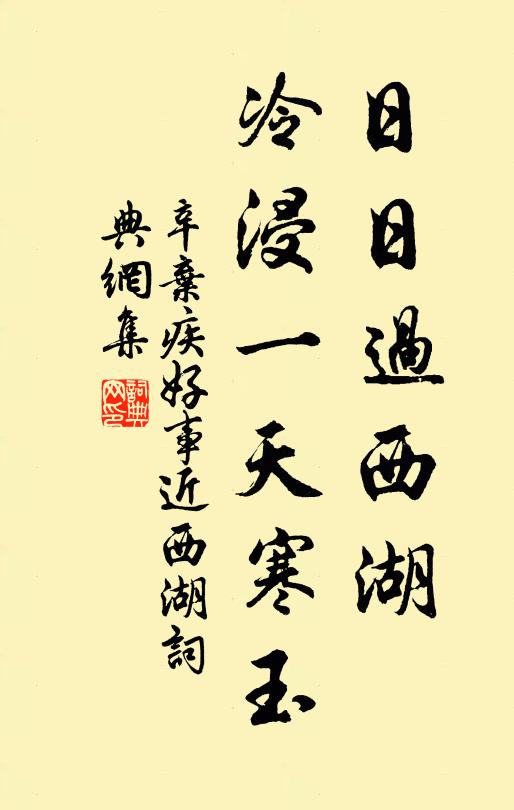 日日過西湖
冷浸一天寒玉
辛棄疾好事近西湖詞
典網集
詞典網印